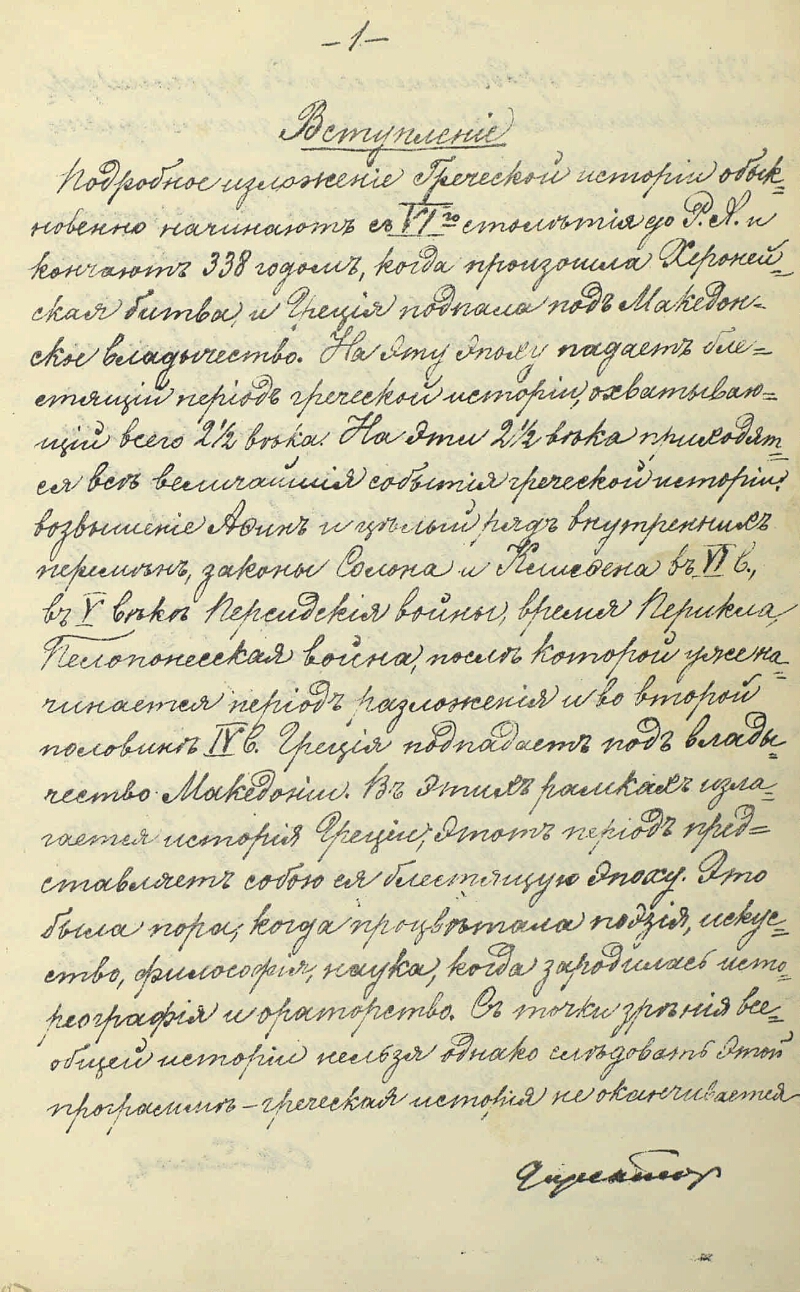 -1-
Вступленіе
Подробное изложеніе Греческой исторіи обык-
новенно начинаютъ съ VI го столѣтія до Р. Х. и
кончаютъ 338 годомъ, когда произошла Хероней-
ская битва, и Греція подпала подъ Македон-
ское владычество. На эту эпоху падаетъ бле-
стящій періодъ греческой исторіи, охватываю-
щій всего 2½ вѣка. На эти 2½ вѣка приходят-
ся всѣ величайшія событія греческой исторіи:
возвышеніе Аѳинъ и цѣлый рядъ внутреннихъ
перемѣнъ, законы Солона и Клисѳена въ VI в.,
въ V вѣкѣ Персидскія войны, время Перикла,
Пелопонесская война, послѣ которой уже на-
чинается періодъ разложенія и во второй
половинѣ IV в. Греція подпадаетъ подъ влады-
чество Македоніи. Въ этихъ рамкахъ изла-
гается исторія Греціи; этотъ періодъ пред-
ставляетъ собою ея блестящую эпоху. Это
была пора, когда процвѣтала поэзія, искус-
ство, философія, наука, когда зародилась исто-
ріографія и ораторство. Съ точки зрѣнія все-
общей исторіи нельзя однако слѣдовать этой
программѣ - греческая исторія не оканчивается